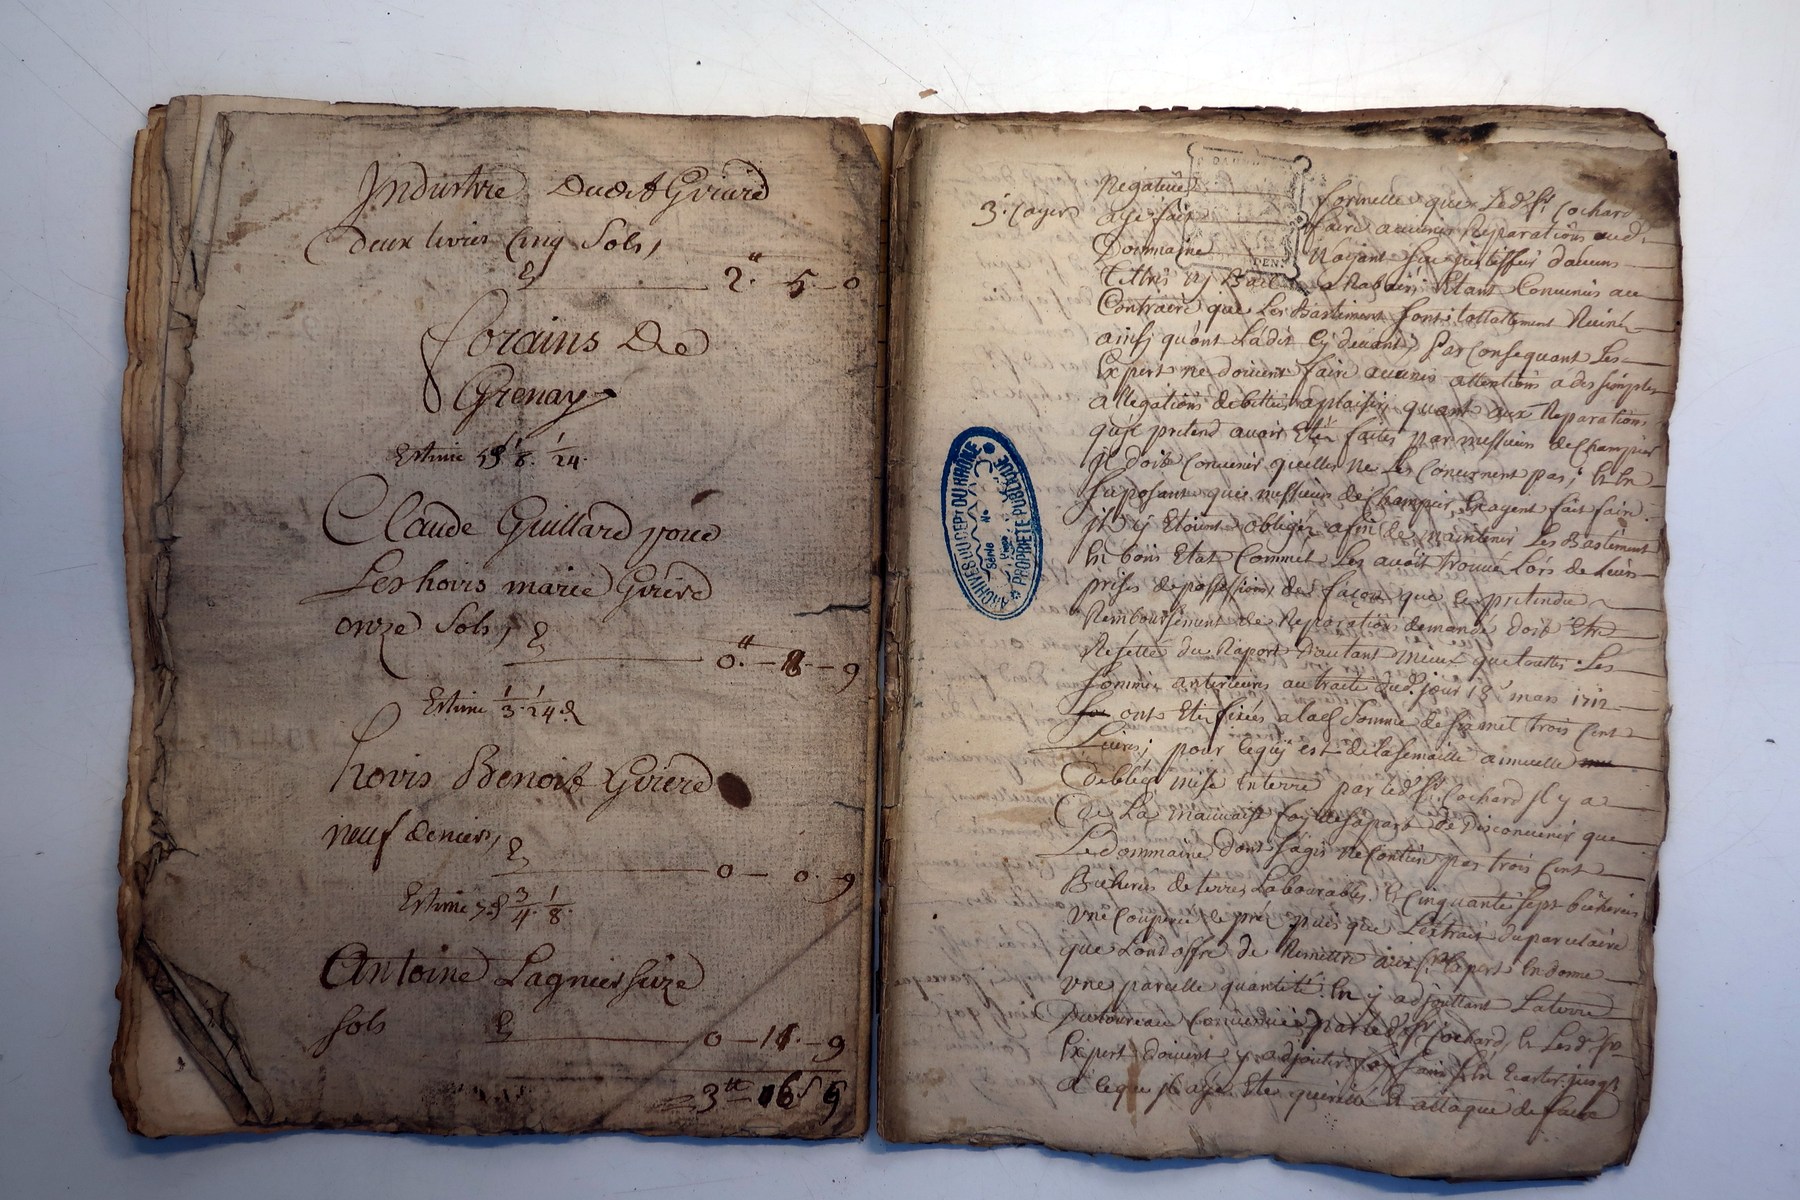 Industrie dudit Guiard
deux livres cinq sols,
2 # 5 - 0
Forains De
Grenay
Estime 1/8. 1/24.
Claude Guillard pour
Les hoirs marie
onze sols,
0 # - 8 - 9
Estime 1/3. 1/24.
hoirs Benoit
neuf deniers,
0 - 0 - 9
Estime 3/4. 1/8.
Antoine Lagnier
sols
0 - 9
3 # 16 s 9
3e. Cayer
Negative formelle que Led. Sr. Cochard
aye fait faire aucunes Reparations aud.
Dommaine N'ayant Jus'tiffié d'aucuns
Tittres ny Bail a Rabais, Etant Convenus au
Contraire que Les Bastiment sont tottallement Ruiné
ainsi qu'ont La dit Cy devant, par Consequant Les
Expert ne doivent faire aucunes attentions a des simples
allegations debittes a plaisir, quant aux Reparations
qu'il pretend avoir Eté faites par messieurs de Champier
il doit Convenir qu'elles ne Les Concernent pas; En
suposant que messieurs de Champier, En ayent fait faire
il y Etoient obligés afin de maintenir Les Bastiment
En bons Etat Comme Les avoit trouvé Lors de Leurs
prises de possessions, de façon que le pretendu
Remboursement de Reparations demandé doit Etre
Rejetté du Raport d'autant mieux que touttes Les
sommes anterieures au traitté dud. jour 18 mars 1712
onts Eté fixées a lad. somme de six mil trois Cent
Livres; pour ce qui est de la semaille annuelle
De bled mise En terre par led. Sr. Cochard Il y a
De La mauvaise foy de sa part de Disconvenir que
Le dommaine dont s'agis ne Contien pas trois Cent
Bicherés de terres Labourables, Et Cinquante sept bicherés
une Couperée de pré puis que L'extrait du parcelaire
que Lond offre de Remettre aux Srs. Expert En donne
une pareille quantité. En y adjouttant La terre
Du toureau Convenüe par led. Sr. Cochard, Et Les d.
Expert doivent y adjouter foy sans s'En Ecarter, jusq'
a ce qu'il aye Eté quérélé Et attaqué de faux
ARCHIVES DU DEPt DU RHÔNE
Série
No
PROPRIÉTÉ PUBLIQUE
DEN.